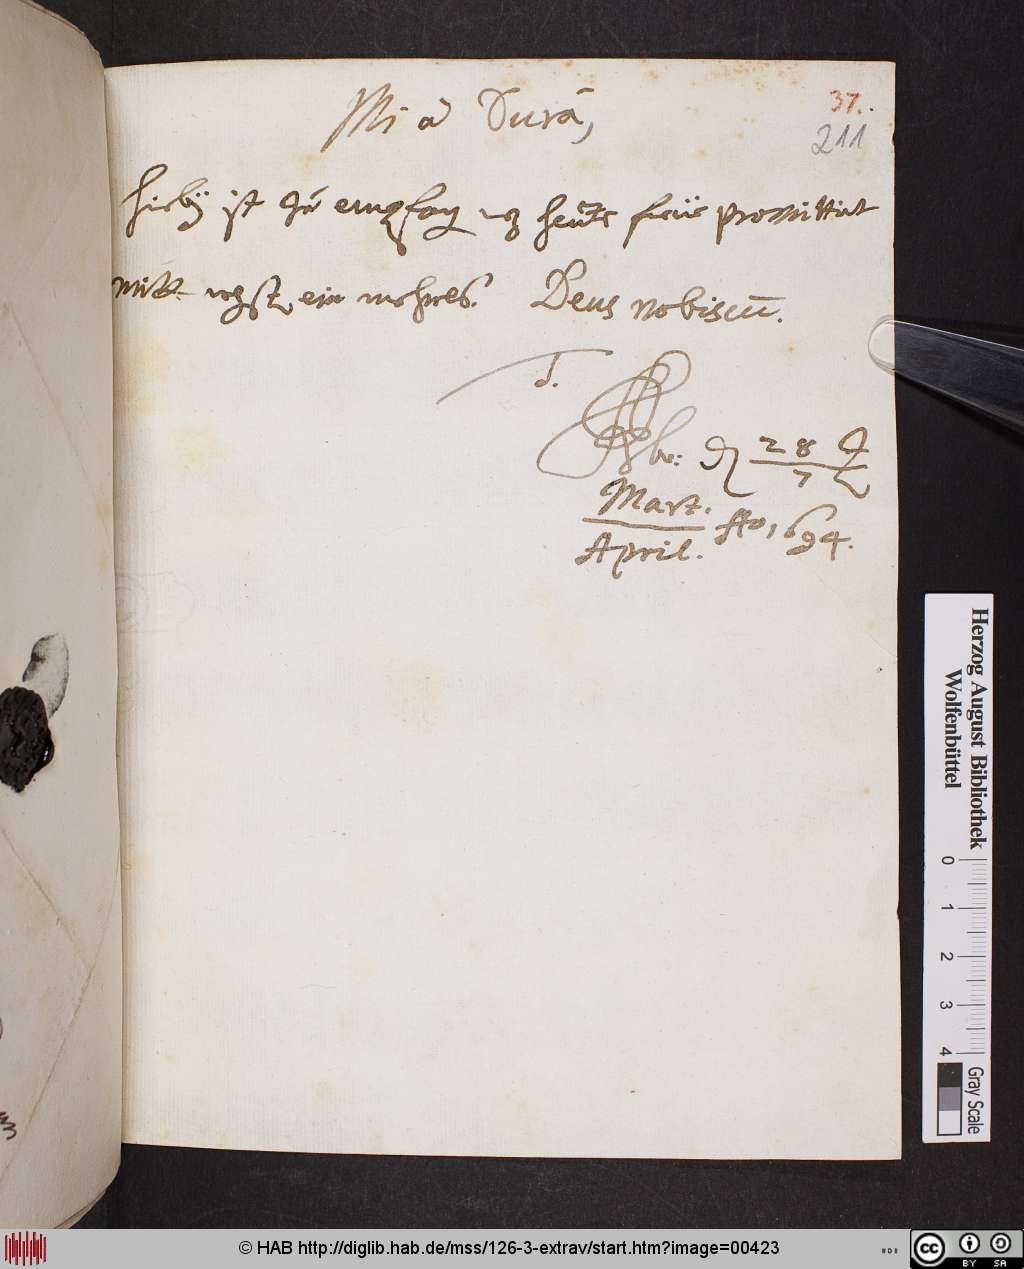 37.
211
Mi a Durã,
hiebÿ ist zu empfang heüte promittirt
mitt negst ein mehres. Deus nobiscũ.
d.
28
7
Mart.
April. Ao, 1694.
Herzog August Bibliothek
Wolfenbüttel
0 1 2 3 4
Gray Scale
© HAB http://diglib.hab.de/mss/126-3-extrav/start.htm?image=00423
cc BY SA